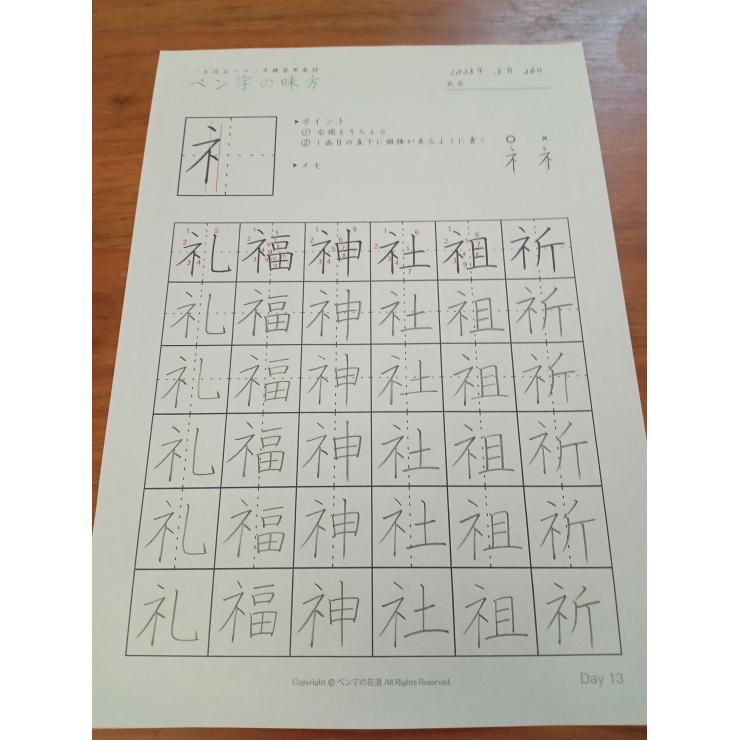 一生役立つペン字練習帯教材
ペン字の味方
2023年 3月 26日
氏名
ネ
▶ポイント
① 右端をそろえる
② 1画目の真下に縦棒が来るように書く
▶メモ
○ ×
ネ ネ
礼 福 神 社 祖 祈
礼 福 神 社 祖 祈
礼 福 神 社 祖 祈
礼 福 神 社 祖 祈
礼 福 神 社 祖 祈
礼 福 神 社 祖 祈
Copyright © ペン字の花道 All Rights Reserved.
Day 13